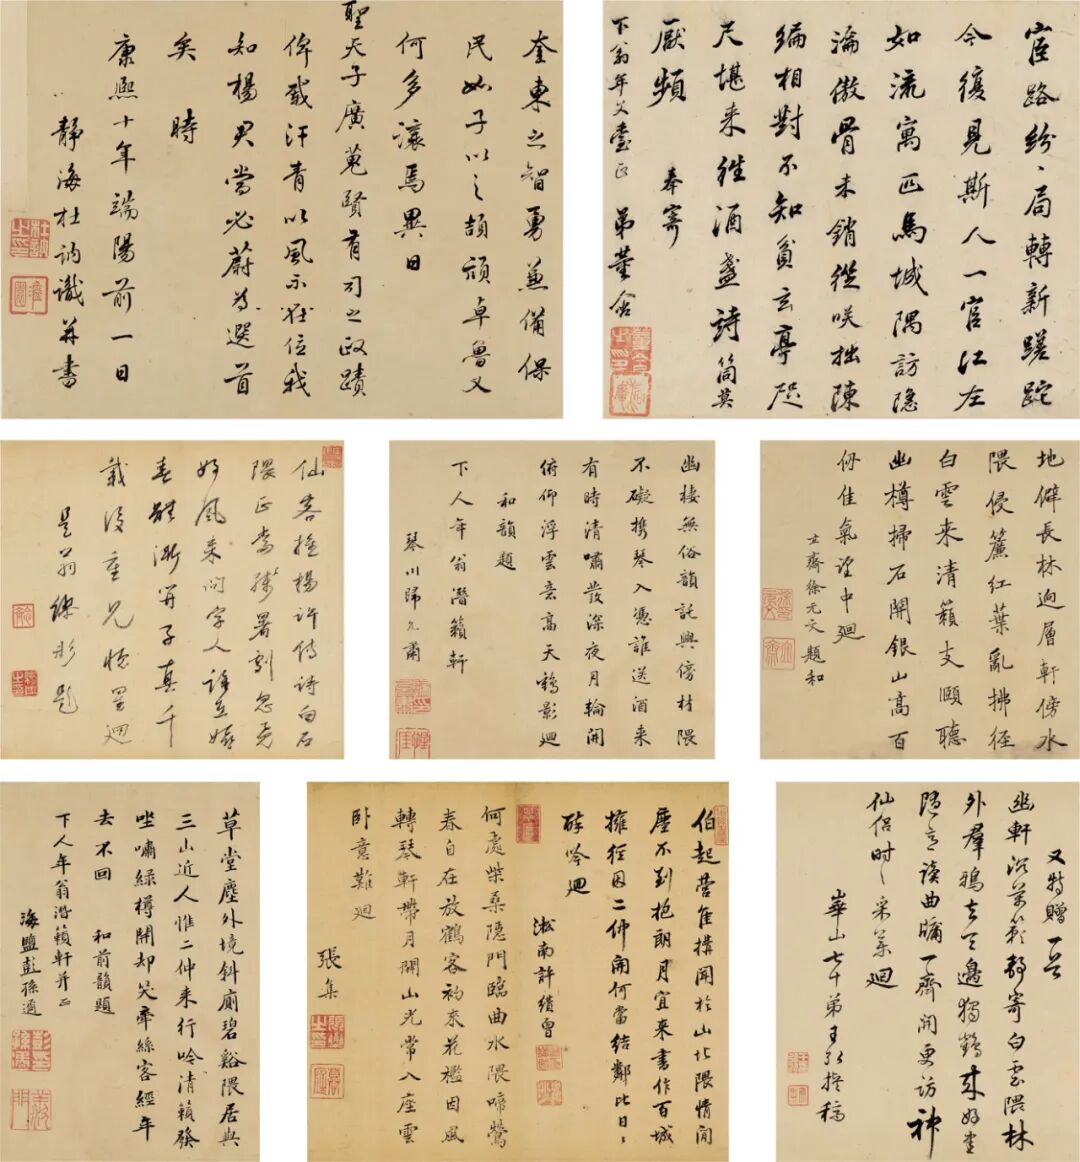 奎東之智勇兼備保
民如子以之頡頏卓魯又
何多瀼焉異日
聖天子廣蒐賢有司之政蹟
俾載汗青以風示在位我
知楊君當必蔚為選首
矣 時
康熙十年端陽前一日
靜海杜訥識并書
宦路紛〻局轉新蹉跎
今復見斯人一官江左
如流寓匹馬城隅訪隱
淪傲骨未銷從咲拙陳
編相對不知貧玄亭咫
尺堪来往酒盞詩筒莫
厭頻 奉寄
下翁年父臺正 弟董含
仙菴揚許傳詩白石
隈正當殘暑劇忽覺
好風来問字人
春醒漸開子真千
載後重見
是翁繆彤題
幽棲無俗韻託興傍林隈
不礙携琴入憑誰送酒来
有時清嘯發深夜月輪開
俯仰浮雲意高天鶴影廻
和韻題
下人年翁潛籟軒
琴川歸允肅
地僻長林逈層軒傍水
隈侵簾紅葉亂拂徑
白雲来清籟支頤聽
幽樽掃石開銀山高百
仞佳氣望中廻
立齋徐元文題和
草堂塵外境斜廁碧谿隈居與
三山近人惟二仲来行吟清籟發
坐嘯緑樽開却笑牽絲客經年
去不回 和前韻題
下人年翁潛籟軒并正
海鹽彭孫遹
伯起營隹搆開於山北隈情閒
塵不到抱朗月宜来書作百城
擁徑因二仲開何當結鄰比日〻
酔吟廻
淞南許纘曾
何處柴桑隱門臨曲水隈啼鶯
春自在放鶴客初来花檻因風
轉琴軒帶月開山光常入座雲
卧意難廻
張集
又特贈一首
幽軒沉萬籟静寄白雲隈林
外羣鴉去天邊獨鶴来好書
隨意讀曲牖一齊開更訪神
仙侣时〻采藥廻
華山七十弟王弘撰稿